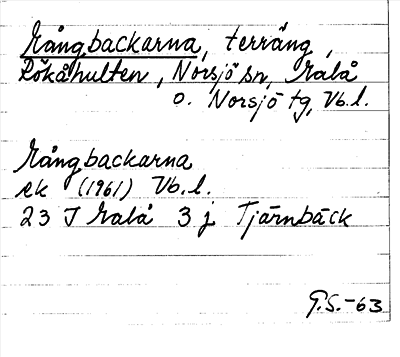 Mångbackarna, terräng,
Rökåhulten, Norsjö sn, Malå
o. Norsjö tg, Vb. l.
Mångbackarna
ek (1961) Vb. l.
23 J Malå 3 j Tjärnbäck
G.S. -63